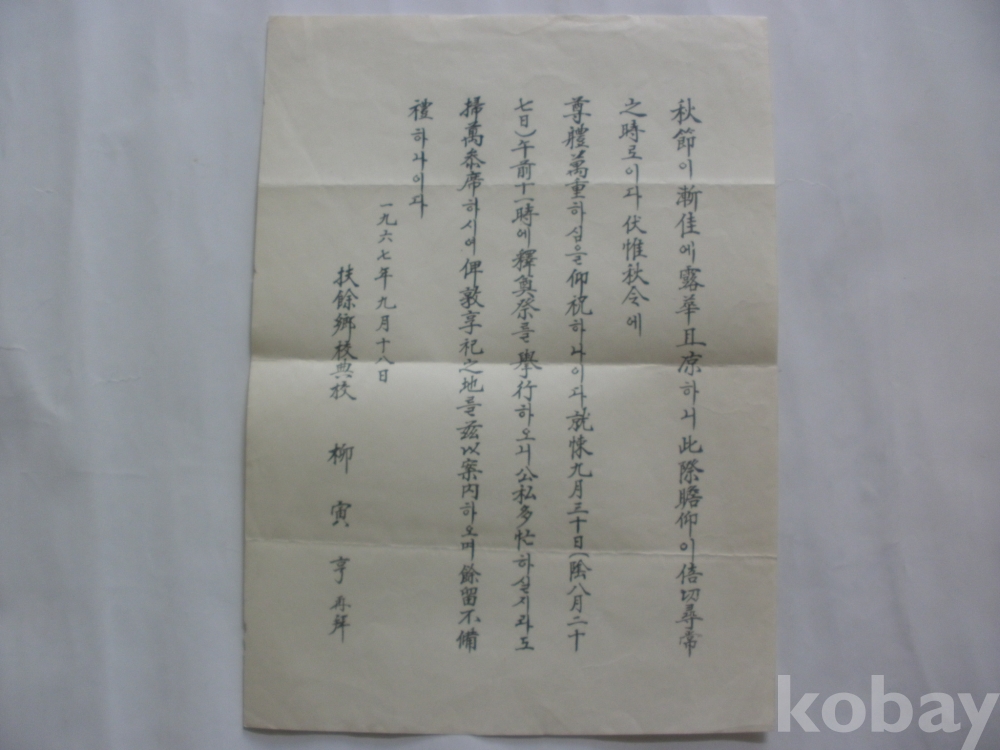 秋節이 漸佳에 露華且凉하니 此際瞻仰이 倍切尋常
之時로이다 伏惟秋令에
尊體萬重하심을 仰祝하나이다 就悚九月三十日(陰八月二十
七日)午前十一時에 釋奠祭를 擧行하오니 公私多忙하실지라도
掃萬叅席하시여 俾敦享祀之地를 玆以案內하오며 餘留不備
禮하나이다
一九六七年 九月 十八日
扶餘鄕校典校 柳寅亨 再拜
kobay